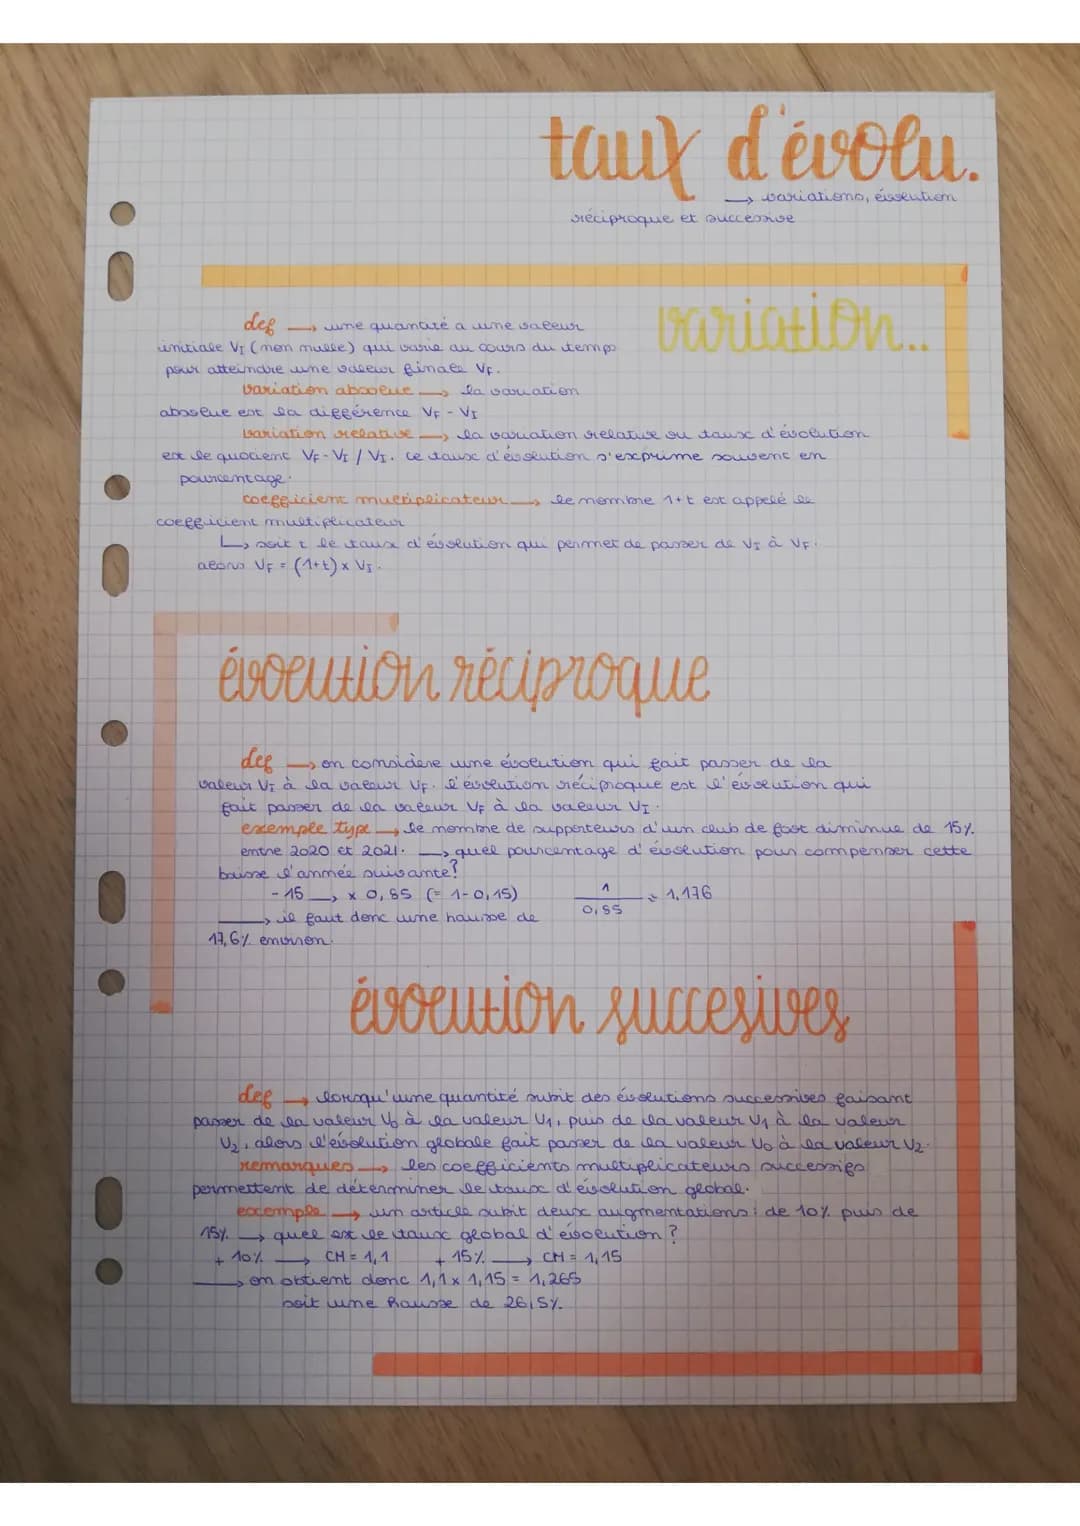 taux d'évolu.
→ variations, évolution
réciproque et successive
variation..
def → une quantité a une valeur
initiale VI (non nulle) qui varie au cours du temps
pour atteindre une valeur finale VF.
variation absolue → la variation
absolue est la différence VF - VI
variation relative → la variation relative ou taux d'évolution
est le quotient VF - VI / VI. ce taux d'évolution s'exprime souvent en
pourcentage.
coefficient multiplicateur → le nombre 1+t est appelé le
coefficient multiplicateur
↳ soit t le taux d'évolution qui permet de passer de VI à VF.
alors VF = (1+t) x VI.
évolution réciproque
def → on considère une évolution qui fait passer de la
valeur VI à la valeur VF. l'évolution réciproque est l'évolution qui
fait passer de la valeur VF à la valeur VI.
exemple type → le nombre de supporteurs d'un club de foot diminue de 15%
entre 2020 et 2021. → quel pourcentage d'évolution pour compenser cette
baisse l'année suivante?
- 15 → x 0,85 (= 1-0,15) 1/0,85 ≈ 1,176
→ il faut donc une hausse de
17,6% environ.
évolution succesives
def → lorsqu'une quantité subit des évolutions successives faisant
passer de la valeur V0 à la valeur V1, puis de la valeur V1 à la valeur
V2, alors l'évolution globale fait passer de la valeur V0 à la valeur V2.
remarques → les coefficients multiplicateurs successifs
permettent de déterminer le taux d'évolution global.
exemple → un article subit deux augmentations : de 10% puis de
15% → quel est le taux global d'évolution ?
+ 10% → CM = 1,1 + 15% → CM = 1,15
→ on obtient donc 1,1 x 1,15 = 1,265
soit une hausse de 26,5%.